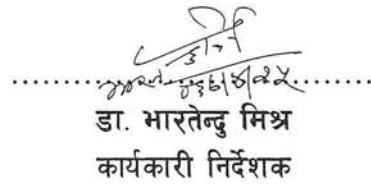 डा. भारतेन्दु मिश्र
कार्यकारी निर्देशक